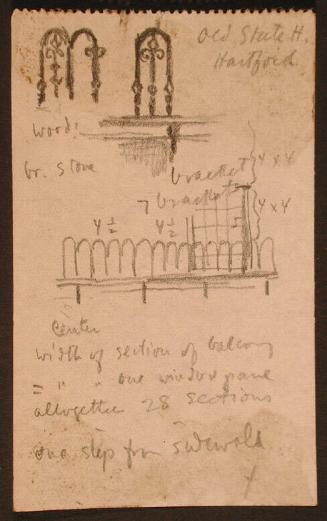 Old State H.
Hartford
wood:
br. stone
bracket 4 x 4
7 brackets 4 x 4
4 1/2 4 1/2
Center
width of section of balcony
= " " one window pane
altogether 28 sections
one step from sidewalk